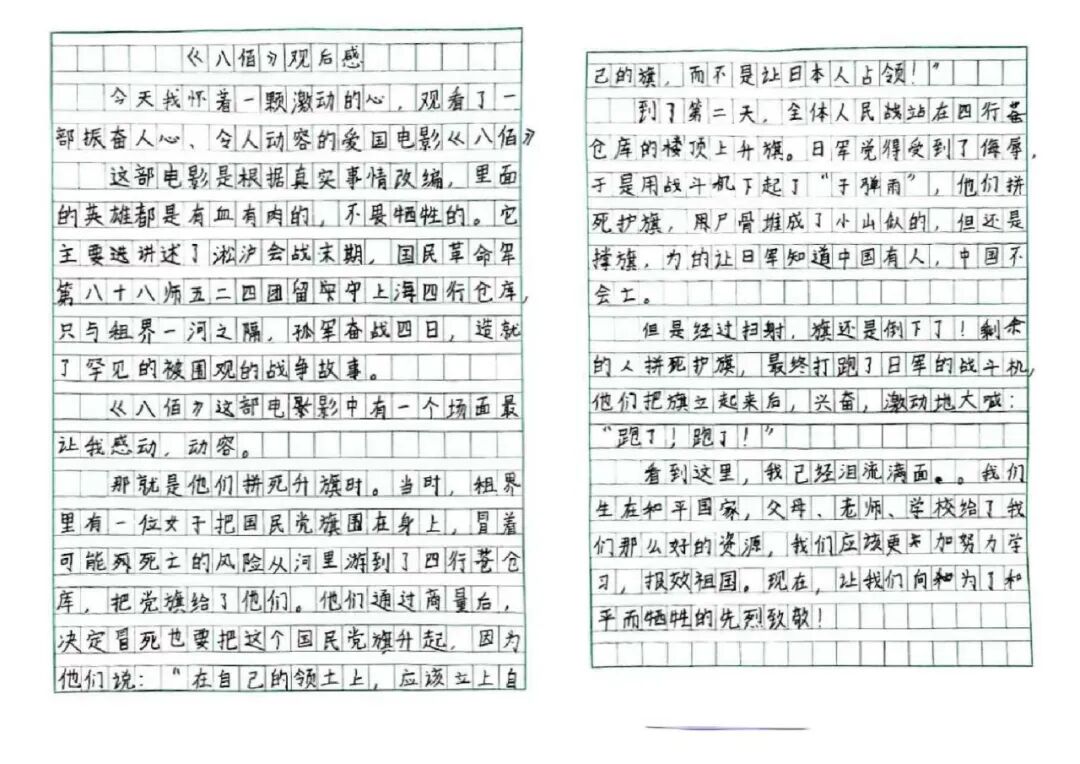 《八佰》观后感
今天我怀着一颗激动的心，观看了一
部振奋人心、令人动容的爱国电影《八佰》
这部电影是根据真实事情改编，里面
的英雄都是有血有肉的，不畏牺牲的。它
主要选讲述了淞沪会战末期，国民革命军
第八十八师五二四团留守上海四行仓库，
只与租界一河之隔，孤军奋战四日，造就
了罕见的被围观的战争故事。
《八佰》这部电影中有一个场面最
让我感动，动容。
那就是他们拼死升旗时。当时，租界
里有一位女子把国民党旗围在身上，冒着
可能死亡的风险从河里游到了四行仓
库，把党旗给了他们。他们通过商量后，
决定冒死也要把这个国民党旗升起，因为
他们说：“在自己的领土上，应该立上自
己的旗，而不是让日本人占领！”
到了第二天，全体人民战站在四行
仓库的楼顶上升旗。日军觉得受到了侮辱，
于是用战斗机下起了“子弹雨”，他们拼
死护旗，用尸骨堆成了小山似的，但还是
撑旗，为的让日军知道中国有人，中国不
会亡。
但是经过扫射，旗还是倒下了！剩余
的人拼死护旗，最终打跑了日军的战斗机，
他们把旗立起来后，兴奋，激动地大喊：
“跑了！跑了！”
看到这里，我已经泪流满面。。我们
生在和平国家，父母、老师、学校给了我
们那么好的资源，我们应该更加努力学
习，报效祖国。现在，让我们向为了和
平而牺牲的先烈致敬！